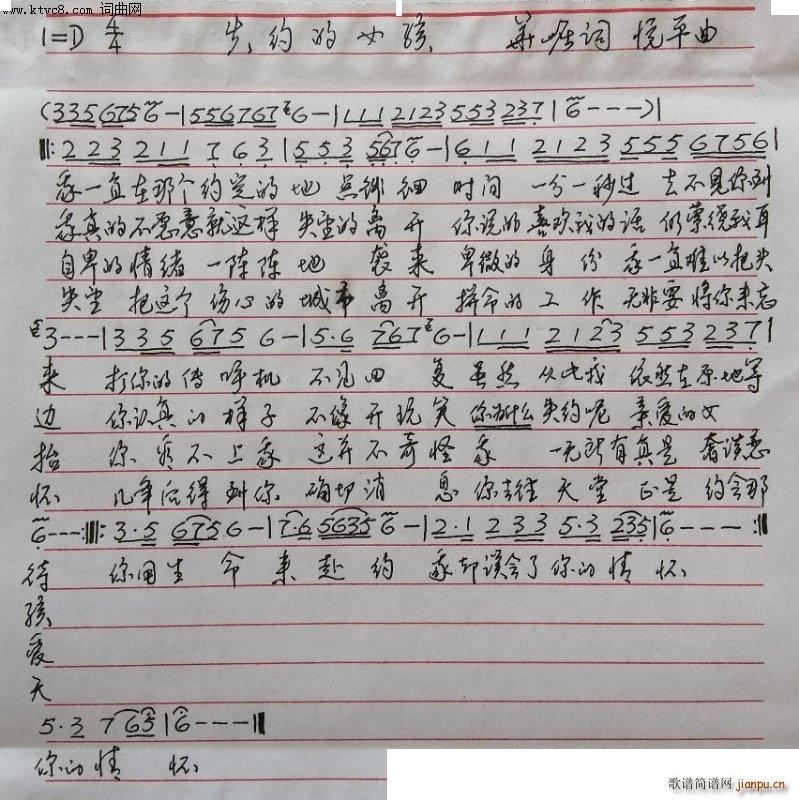 www.ktvc8.com 词曲网
1=D 4/4 失约的女孩 华崛词 悦平曲
(335 6756-|556767 6-|111 2123 553 237|6---)|
‖: 223 211 7 63|553 5676-|611 2123 555 6756|
我一直在那个约定的地点徘徊 时间一分一秒过去不见你到
我真的不愿意就这样失望的离开 你说的喜欢我的话仍萦绕我耳
自卑的情绪一阵阵地袭来 卑微的身份我一直难以把头
失望把这个伤心的城市离开 拼命的工作无非要将你来忘
3---|335 675 6-|5·6 767 6-|111 2123 553 237|
来 打你的传呼机 不见回复 虽然从此我依然在原地等
边 你认真的样子 不像开玩笑 你为什么失约呢亲爱的女
抬 你看不上我 这并不奇怪我 一无所有真是奢谈恋
怀 几年后得到你确切消息 你去往天堂正是约会那
6---:‖: 3·5 675 6-|7·6 5635 6-|2·1 233 5·3 235|6---:‖
待 你用生命来赴约 我却误会了你的情怀
孩
爱
天
5·3 7 65|6---‖
你的情怀
歌谱简谱网
jianpu.cn